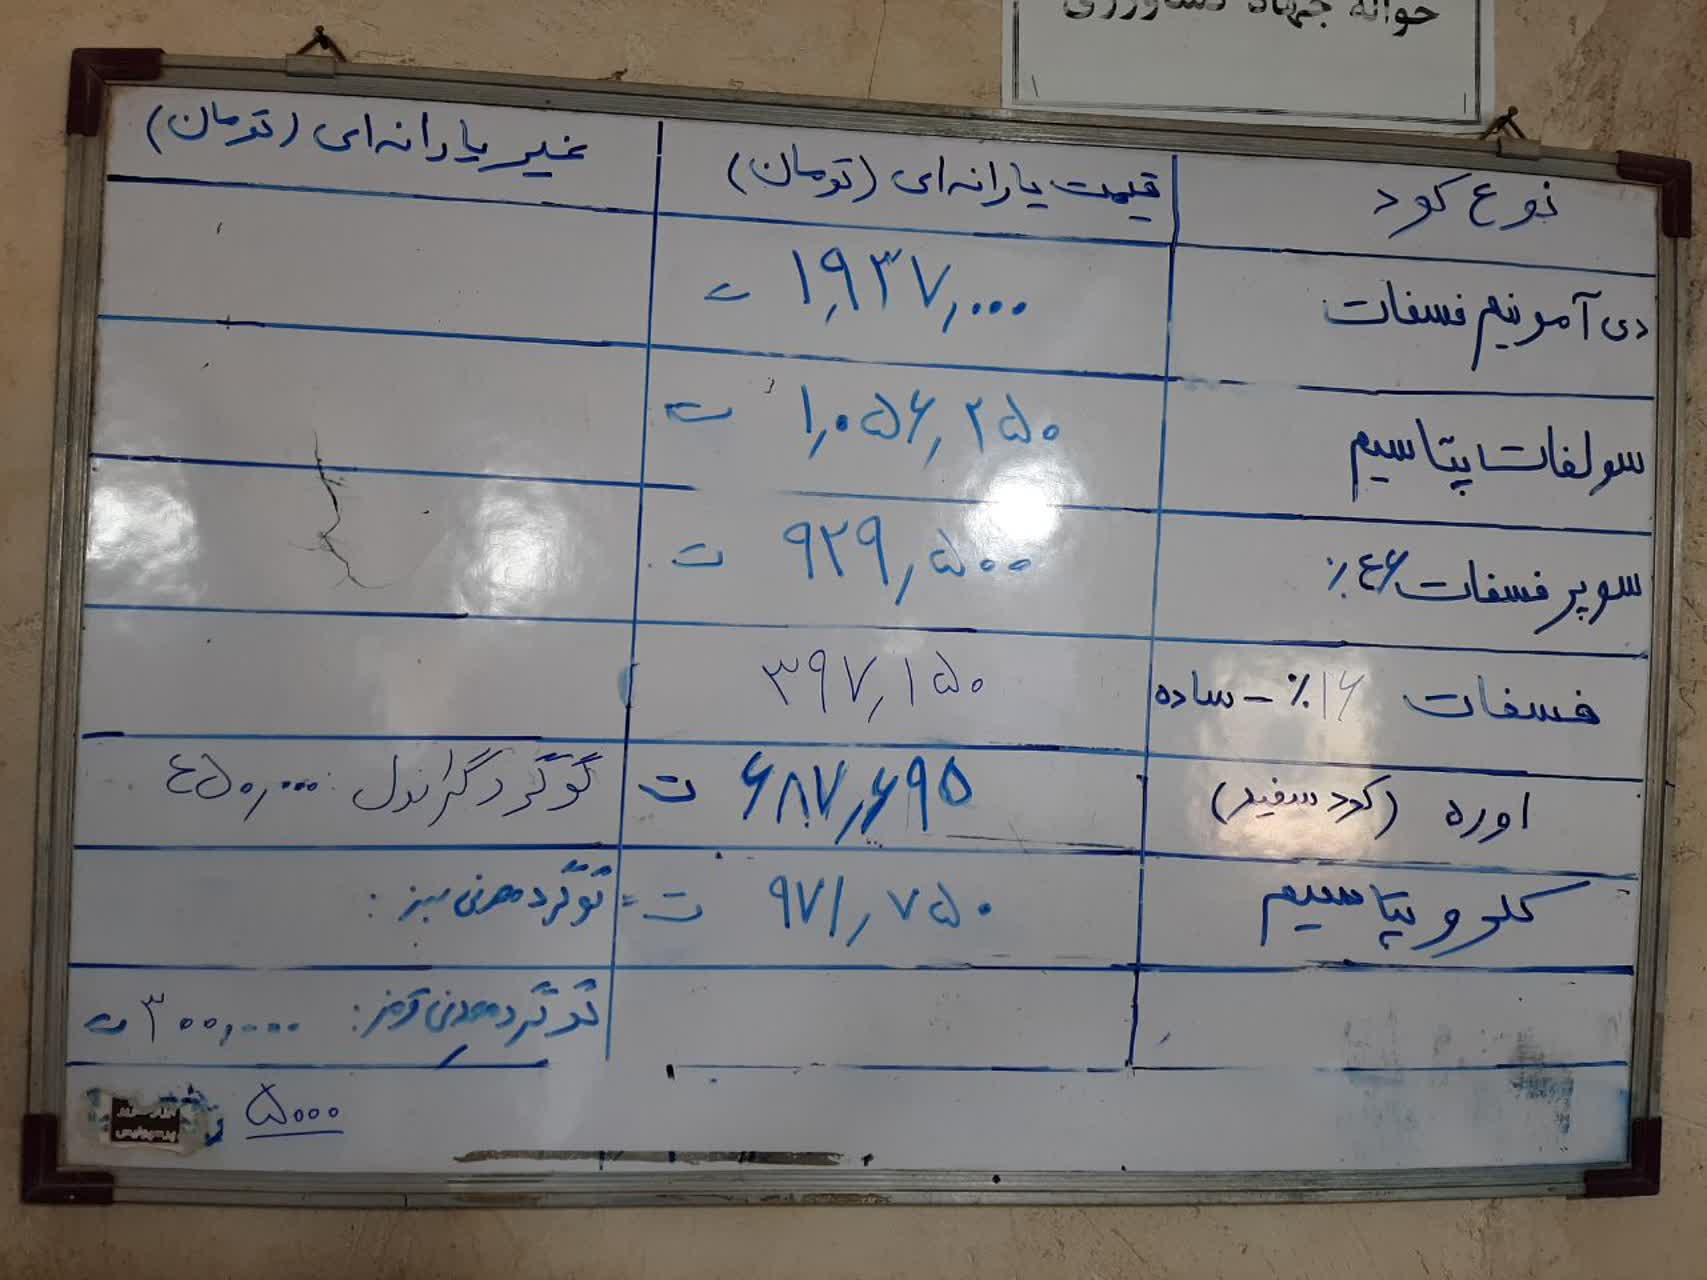 حواله جهاد کشاورزی
نوع کود قیمت یارانه‌ای (تومان) غیر یارانه‌ای (تومان)
دی آمونیم فسفات ۱,۹۳۷,۰۰۰ ت
سولفات پتاسیم ۱,۰۵۶,۲۵۰ ت
سوپر فسفات ۴۶٪ ۹۲۹,۵۰۰ ت
فسفات ۱۶٪ - ساده ۳۹۷,۱۵۰
اوره (کود سفید) ۶۸۷,۶۹۵ ت گوگرد گرانول: ۴۵۰,۰۰۰
کلرو پتاسیم ۹۷۱,۷۵۰ ت گوگرد معدنی سبز:
گوگرد معدنی قرمز: ۳۰۰,۰۰۰ ت
۵۰۰۰